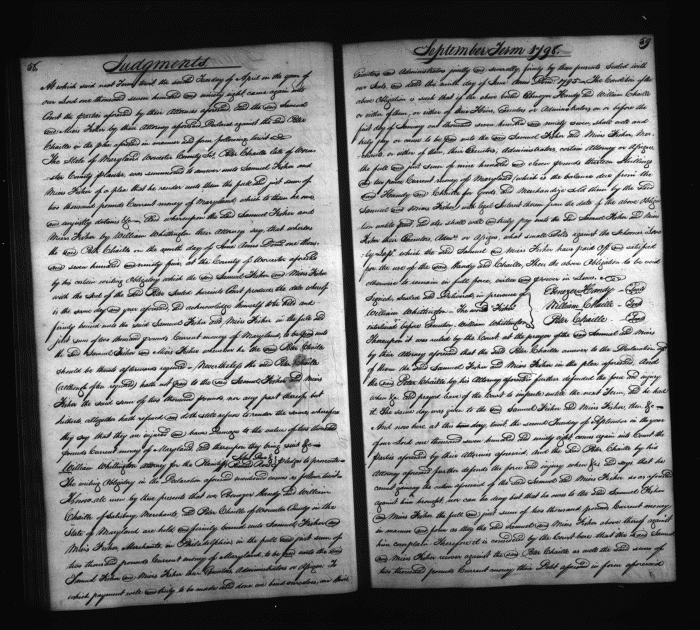 58
Judgments
At which said next Term and the second Tuesday of April in the year of
our Lord one thousand seven hundred and ninety eight came again into
Court the parties aforesaid by their Attornies aforesaid and the said Samuel
and Miers Fisher by their Attorney aforesaid Declares against the said Peter
Chaille in the plea aforesaid in manner and form following towit
The State of Maryland Worcester County Sct. Peter Chaille late of Worces-
ster County planter was summoned to answer unto Samuel Fisher and
Miers Fisher of a plea that he render unto them the full and just sum of
two thousand pounds Current money of Maryland, which to them he owes
and unjustly detains &c. And whereupon the said Samuel Fisher and
Miers Fisher by William Whittington their Attorney say, that whereas
the said Peter Chaille on the ninth day of June Anno Domini one thou-
sand seven hundred and ninety five, at the County of Worcester aforesaid
by his certain writing Obligatory which the said Samuel Fisher and Miers Fisher
with the Seal of the said Peter sealed herein to Court produce the date whereof
is the same day and year aforesaid did acknowledge himself to be held and
firmly bound unto the said Samuel Fisher and Miers Fisher in the full and
just sum of two thousand pounds Current money of Maryland, to be paid unto
the said Samuel Fisher and Miers Fisher whenever he the said Peter Chaille
should be thereto afterwards required. Nevertheless the said Peter Chaille
(altho often required) hath not paid to the said Samuel Fisher and Miers
Fisher the said sum of two thousand pounds nor any part thereof but
hitherto altogether hath refused and doth still refuse to render the same, wherefore
they say that they are injured and have Damage to the value of two thousand
pounds Current money of Maryland and thereupon they bring suit &c.
William Whittington attorney for the Plaintiffs
pledges to prosecute
The writing Obligatory in the Declaration aforesaid mentioned comes as follows towit
Know all men by these presents that we Ebenezer Handy and William
Chaille of Salisbury Merchants, and Peter Chaille of Worcester County in the
State of Maryland are held and firmly bound unto Samuel Fisher and
Miers Fisher, Merchants, in Philadelphia, in the full and just sum of
two thousand pounds Current money of Maryland, to be paid unto the said
Samuel Fisher and Miers Fisher their Executors Administrators or Assigns To
which payment well and truly to be made and done we bind ourselves, our Heirs
September Term 1798.
59
Executors and Administrators jointly and severally firmly by these presents Sealed with
our Seals, and dated the ninth day of June Anno Domini 1795. The Condition of the
above Obligation is such that if the above bound Ebenezer Handy and William Chaille
or either of them, or either of their Heirs, Executors or Administrators do on or before the
first day of January one thousand seven hundred and ninety seven shall well and
truly pay or cause to be paid unto the said Samuel Fisher and Miers Fisher, Mer-
chants or either of them, their Executors, Administrators, certain Attorney or Assigns
the full and just sum of nine hundred and pounds thirteen Shillings
and two pence Current money of Maryland (which is the balance due from the
said Handy and Chaille for goods and Merchandize sold them by the said
Samuel and Miers Fisher) with legal Interest from the date of the above Obliga-
tion until paid and also shall well and truly pay unto the said Samuel and Miers
Fisher their Executors, Admrs or Assigns, what small debts against the Schooner
which the said Samuel and Miers Fisher have paid off and satisfied
for the use of the said Handy and Chaille, Then the above Obligation to be void
otherwise to remain in full force, virtue and power in Law.
Signed, Sealed and Delivered in presence of
William Whittington
Ebenezer Handy Seal
William Chaille Seal
Peter Chaille Seal
interlined before Sealing, William Whittington
Thereupon it was ruled by the Court at the prayer of the said Samuel and Miers
by their Attorney aforesaid that the said Peter Chaille answer to the Declaration of
of them the said Samuel Fisher and Miers Fisher in the plea aforesaid. And
the said Peter Chaille by his Attorney aforesaid further defended the force and injury
when &c. and prayed leave of the Court to imparle until the next Term, and he had
it. The same day was given to the said Samuel Fisher and Miers Fisher, then &c.
And now here at this time day towit the second Tuesday of September in the year
of our Lord one thousand seven hundred and ninety eight came again into Court the
parties aforesaid by their Attornies aforesaid, and the said Peter Chaille by his
Attorney aforesaid further defends the force and injury when &c. and says that he
cannot gainsay the action aforesaid of the said Samuel and Miers Fisher so as aforesaid
against him brought, nor can he deny but that he owes to the said Samuel Fisher
and Miers Fisher the full and just sum of two thousand pounds Current money
in manner and form as they the said Samuel and Miers above thereof against
him complain. Therefore it is considered by the Court here that the said Samuel
and Miers Fisher recover against the said Peter Chaille as well the said sum of
two thousand pounds Current money, their Debt aforesaid in form aforesaid